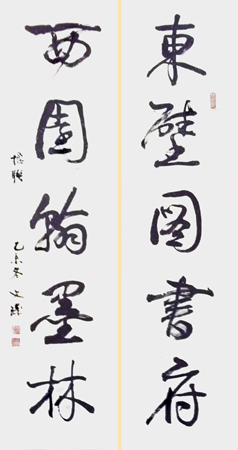 東壁图書府
西園翰墨林
乙未冬